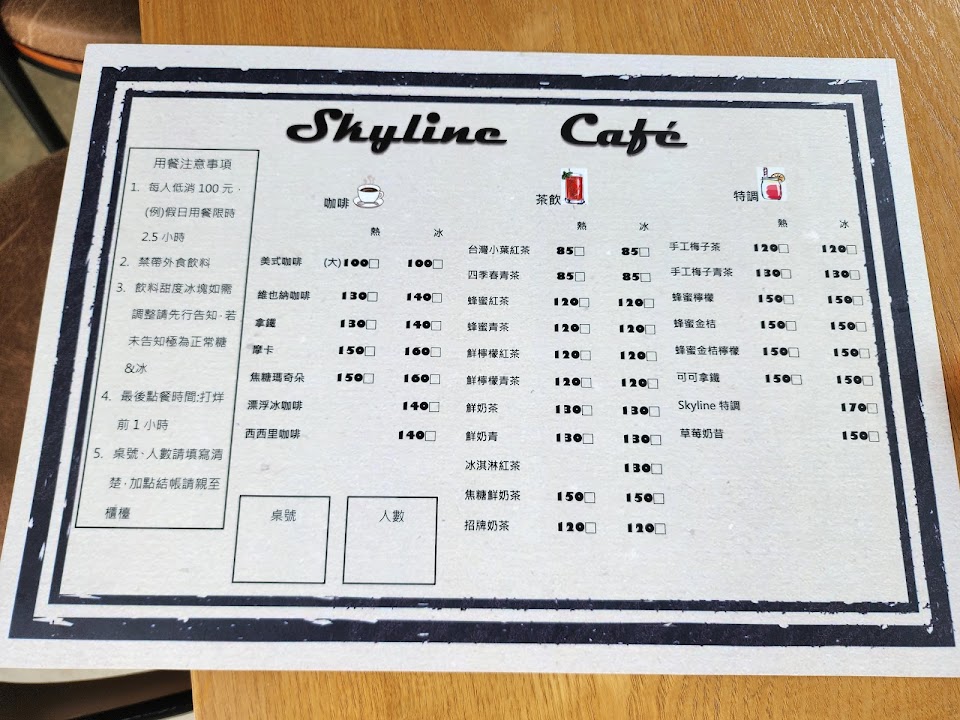 Skyline Café
用餐注意事項
1. 每人低消 100 元，
(例)假日用餐限時
2.5 小時
2. 禁帶外食飲料
3. 飲料甜度冰塊如需
調整請先行告知，若
未告知極為正常糖
&冰
4. 最後點餐時間:打烊
前 1 小時
5. 桌號、人數請填寫清
楚，加點結帳請親至
櫃檯
咖啡
熱 冰
美式咖啡 (大)100□ 100□
維也納咖啡 130□ 140□
拿鐵 130□ 140□
摩卡 150□ 160□
焦糖瑪奇朵 150□ 160□
漂浮冰咖啡 140□
西西里咖啡 140□
桌號
人數
茶飲
熱 冰
台灣小葉紅茶 85□ 85□
四季春青茶 85□ 85□
蜂蜜紅茶 120□ 120□
蜂蜜青茶 120□ 120□
鮮檸檬紅茶 120□ 120□
鮮檸檬青茶 120□ 120□
鮮奶茶 130□ 130□
鮮奶青 130□ 130□
冰淇淋紅茶 130□
焦糖鮮奶茶 150□ 150□
招牌奶茶 120□ 120□
特調
熱 冰
手工梅子茶 120□ 120□
手工梅子青茶 130□ 130□
蜂蜜檸檬 150□ 150□
蜂蜜金桔 150□ 150□
蜂蜜金桔檸檬 150□ 150□
可可拿鐵 150□ 150□
Skyline 特調 170□
草莓奶昔 150□